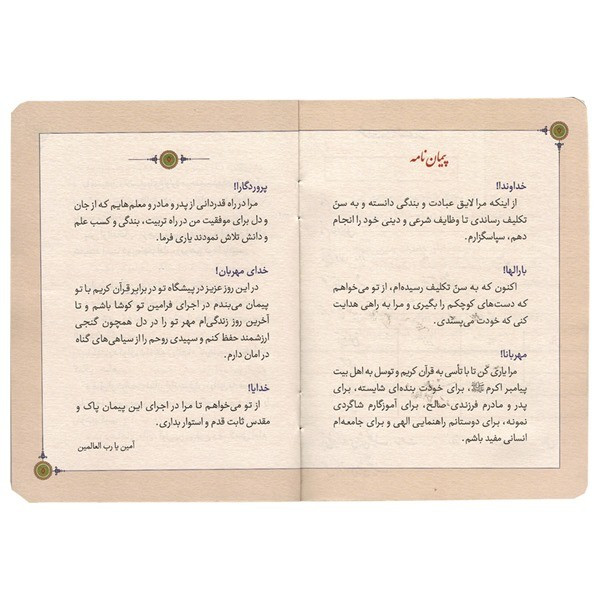 پیمان نامه
خداوندا!
از اینکه مرا لایق عبادت و بندگی دانسته و به سنّ
تکلیف رساندی تا وظایف شرعی و دینی خود را انجام
دهم، سپاسگزارم.
بارالها!
اکنون که به سنّ تکلیف رسیده‌ام، از تو می‌خواهم
که دست‌های کوچکم را بگیری و مرا به راهی هدایت
کنی که خودت می‌پسندی.
مهربانا!
مرا یاری کن تا با تأسی به قرآن کریم و توسل به اهل بیت
پیامبر اکرم ﷺ، برای خودت بنده‌ای شایسته، برای
پدر و مادرم فرزندی صالح، برای آموزگارم شاگردی
نمونه، برای دوستانم راهنمایی الهی و برای جامعه‌ام
انسانی مفید باشم.
پروردگارا!
مرا در راه قدردانی از پدر و مادر و معلم‌هایم که از جان
و دل برای موفقیت من در راه تربیت، بندگی و کسب علم
و دانش تلاش نمودند یاری فرما.
خدای مهربان!
در این روز عزیز در پیشگاه تو در برابر قرآن کریم با تو
پیمان می‌بندم در اجرای فرامین تو کوشا باشم و تا
آخرین روز زندگی‌ام مهر تو را در دل همچون گنجی
ارزشمند حفظ کنم و سپیدی روحم را از سیاهی‌های گناه
در امان دارم.
خدایا!
از تو می‌خواهم تا مرا در اجرای این پیمان پاک و
مقدس ثابت قدم و استوار بداری.
آمین یا رب العالمین